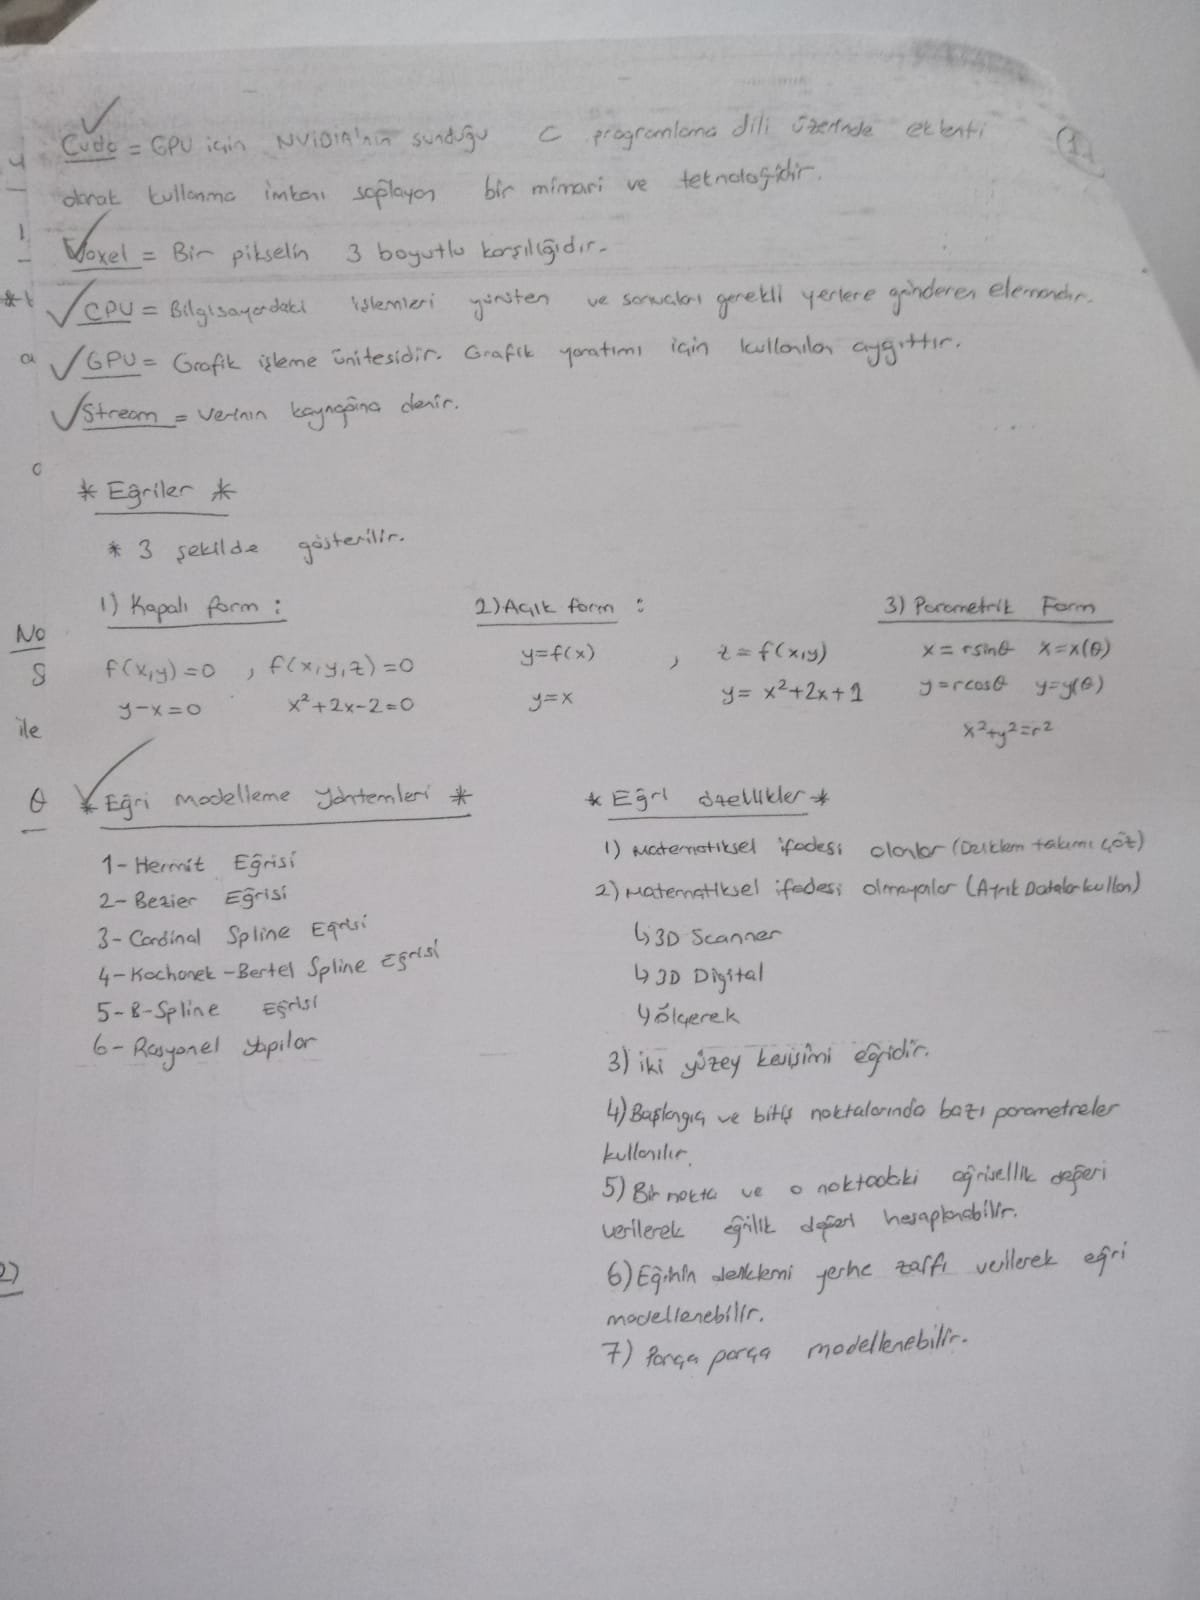 Cuda = GPU için NVIDIA'nın sunduğu C programlama dili üzerinde eklenti
olarak kullanma imkanı sağlayan bir mimari ve teknolojidir.
1
Voxel = Bir pikselin 3 boyutlu karşılığıdır.
CPU = Bilgisayardaki işlemleri yürüten ve sonuçları gerekli yerlere gönderen elemandır.
GPU = Grafik işleme ünitesidir. Grafik yaratımı için kullanılan aygıttır.
Stream = Verinin kaynağına denir.
* Eğriler *
* 3 şekilde gösterilir.
1) Kapalı form :
f(x,y)=0 , f(x,y,z)=0
y-x=0 x²+2x-2=0
2) Açık form :
y=f(x) , z=f(x,y)
y=x y=x²+2x+1
3) Parametrik Form
x=rsinθ x=x(θ)
y=rcosθ y=y(θ)
x²+y²=r²
No
8
ile
θ
* Eğri modelleme yöntemleri *
1- Hermit Eğrisi
2- Bezier Eğrisi
3- Cardinal Spline Eğrisi
4- Kochanek-Bertel Spline Eğrisi
5- B-Spline Eğrisi
6- Rasyonel Yapılar
* Eğri özellikler *
1) Matematiksel ifadesi olanlar (Denklem takımı çöz)
2) Matematiksel ifadesi olmayanlar (Ayrık Datalar kullan)
↳ 3D Scanner
↳ 3D Digital
↳ ölçerek
3) iki yüzey kesişimi eğridir.
4) Başlangıç ve bitiş noktalarında bazı parametreler
kullanılır.
5) Bir nokta ve o noktadaki eğrisellik değeri
verilerek eğrilik değeri hesaplanabilir.
6) Eğrinin denklemi yerine zarfı verilerek eğri
modellenebilir.
7) Parça parça modellenebilir.
2)